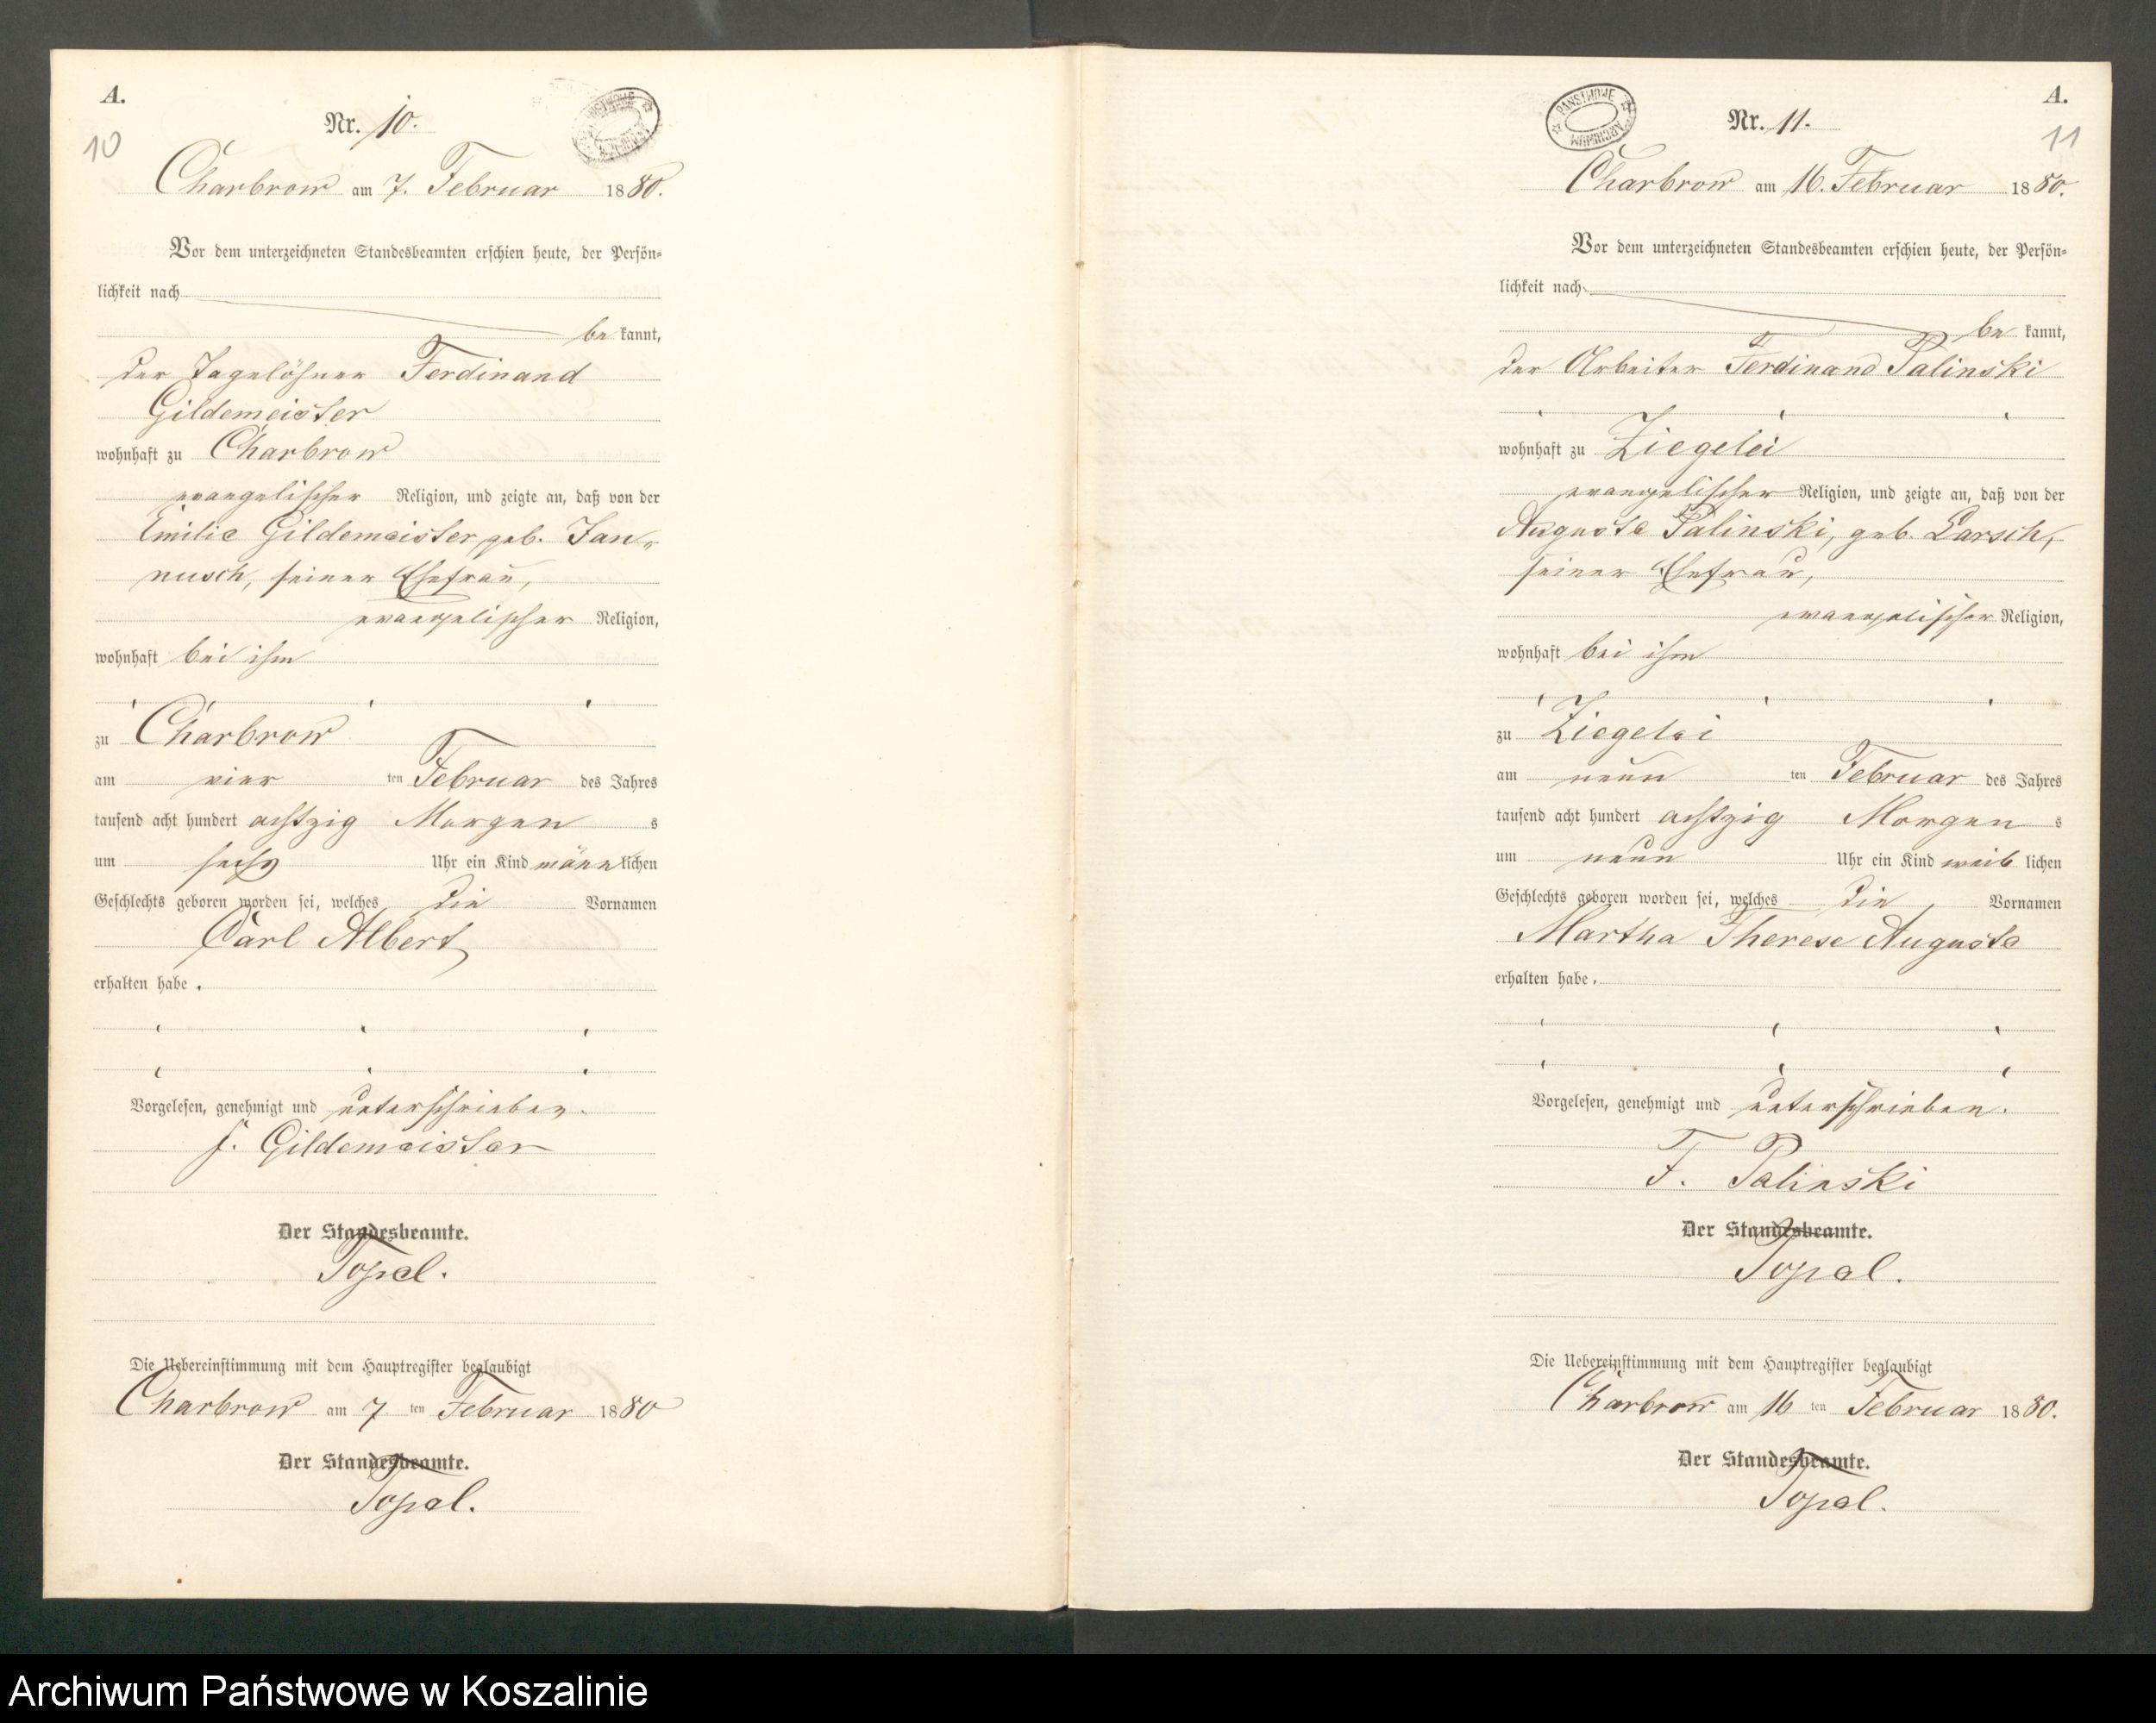 A.
10
Nr. 10.
Charbrow am 7. Februar 1880.
Vor dem unterzeichneten Standesbeamten erschien heute, der Persön-
lichkeit nach
be kannt,
der Tagelöhner Ferdinand
Gildemeister
wohnhaft zu Charbrow
evangelischer Religion, und zeigte an, daß von der
Emilie Gildemeister, geb. Jan-
nusch, seiner Ehefrau,
evangelischer Religion,
wohnhaft bei ihm
zu Charbrow
am vier ten Februar des Jahres
tausend acht hundert achtzig Morgen s
um sechs Uhr ein Kind männlichen
Geschlechts geboren worden sei, welches die Vornamen
Carl Albert
erhalten habe.
Vorgelesen, genehmigt und unterschrieben.
F. Gildemeister
Der Standesbeamte.
Topel.
Die Uebereinstimmung mit dem Hauptregister beglaubigt
Charbrow am 7 ten Februar 1880
Der Standesbeamte.
Topel.
PANSTWOWE ARCHIWUM
A.
11
Nr. 11.
Charbrow am 16. Februar 1880.
Vor dem unterzeichneten Standesbeamten erschien heute, der Persön-
lichkeit nach
be kannt,
der Arbeiter Ferdinand Palinski
wohnhaft zu Ziegelei
evangelischer Religion, und zeigte an, daß von der
Auguste Palinski, geb. Larsch,
seiner Ehefrau,
evangelischer Religion,
wohnhaft bei ihm
zu Ziegelei
am neun ten Februar des Jahres
tausend acht hundert achtzig Morgen s
um neun Uhr ein Kind weib lichen
Geschlechts geboren worden sei, welches die Vornamen
Martha Therese Auguste
erhalten habe.
Vorgelesen, genehmigt und unterschrieben.
F. Palinski
Der Standesbeamte.
Topel.
Die Uebereinstimmung mit dem Hauptregister beglaubigt
Charbrow am 16 ten Februar 1880.
Der Standesbeamte.
Topel.
Archiwum Państwowe w Koszalinie